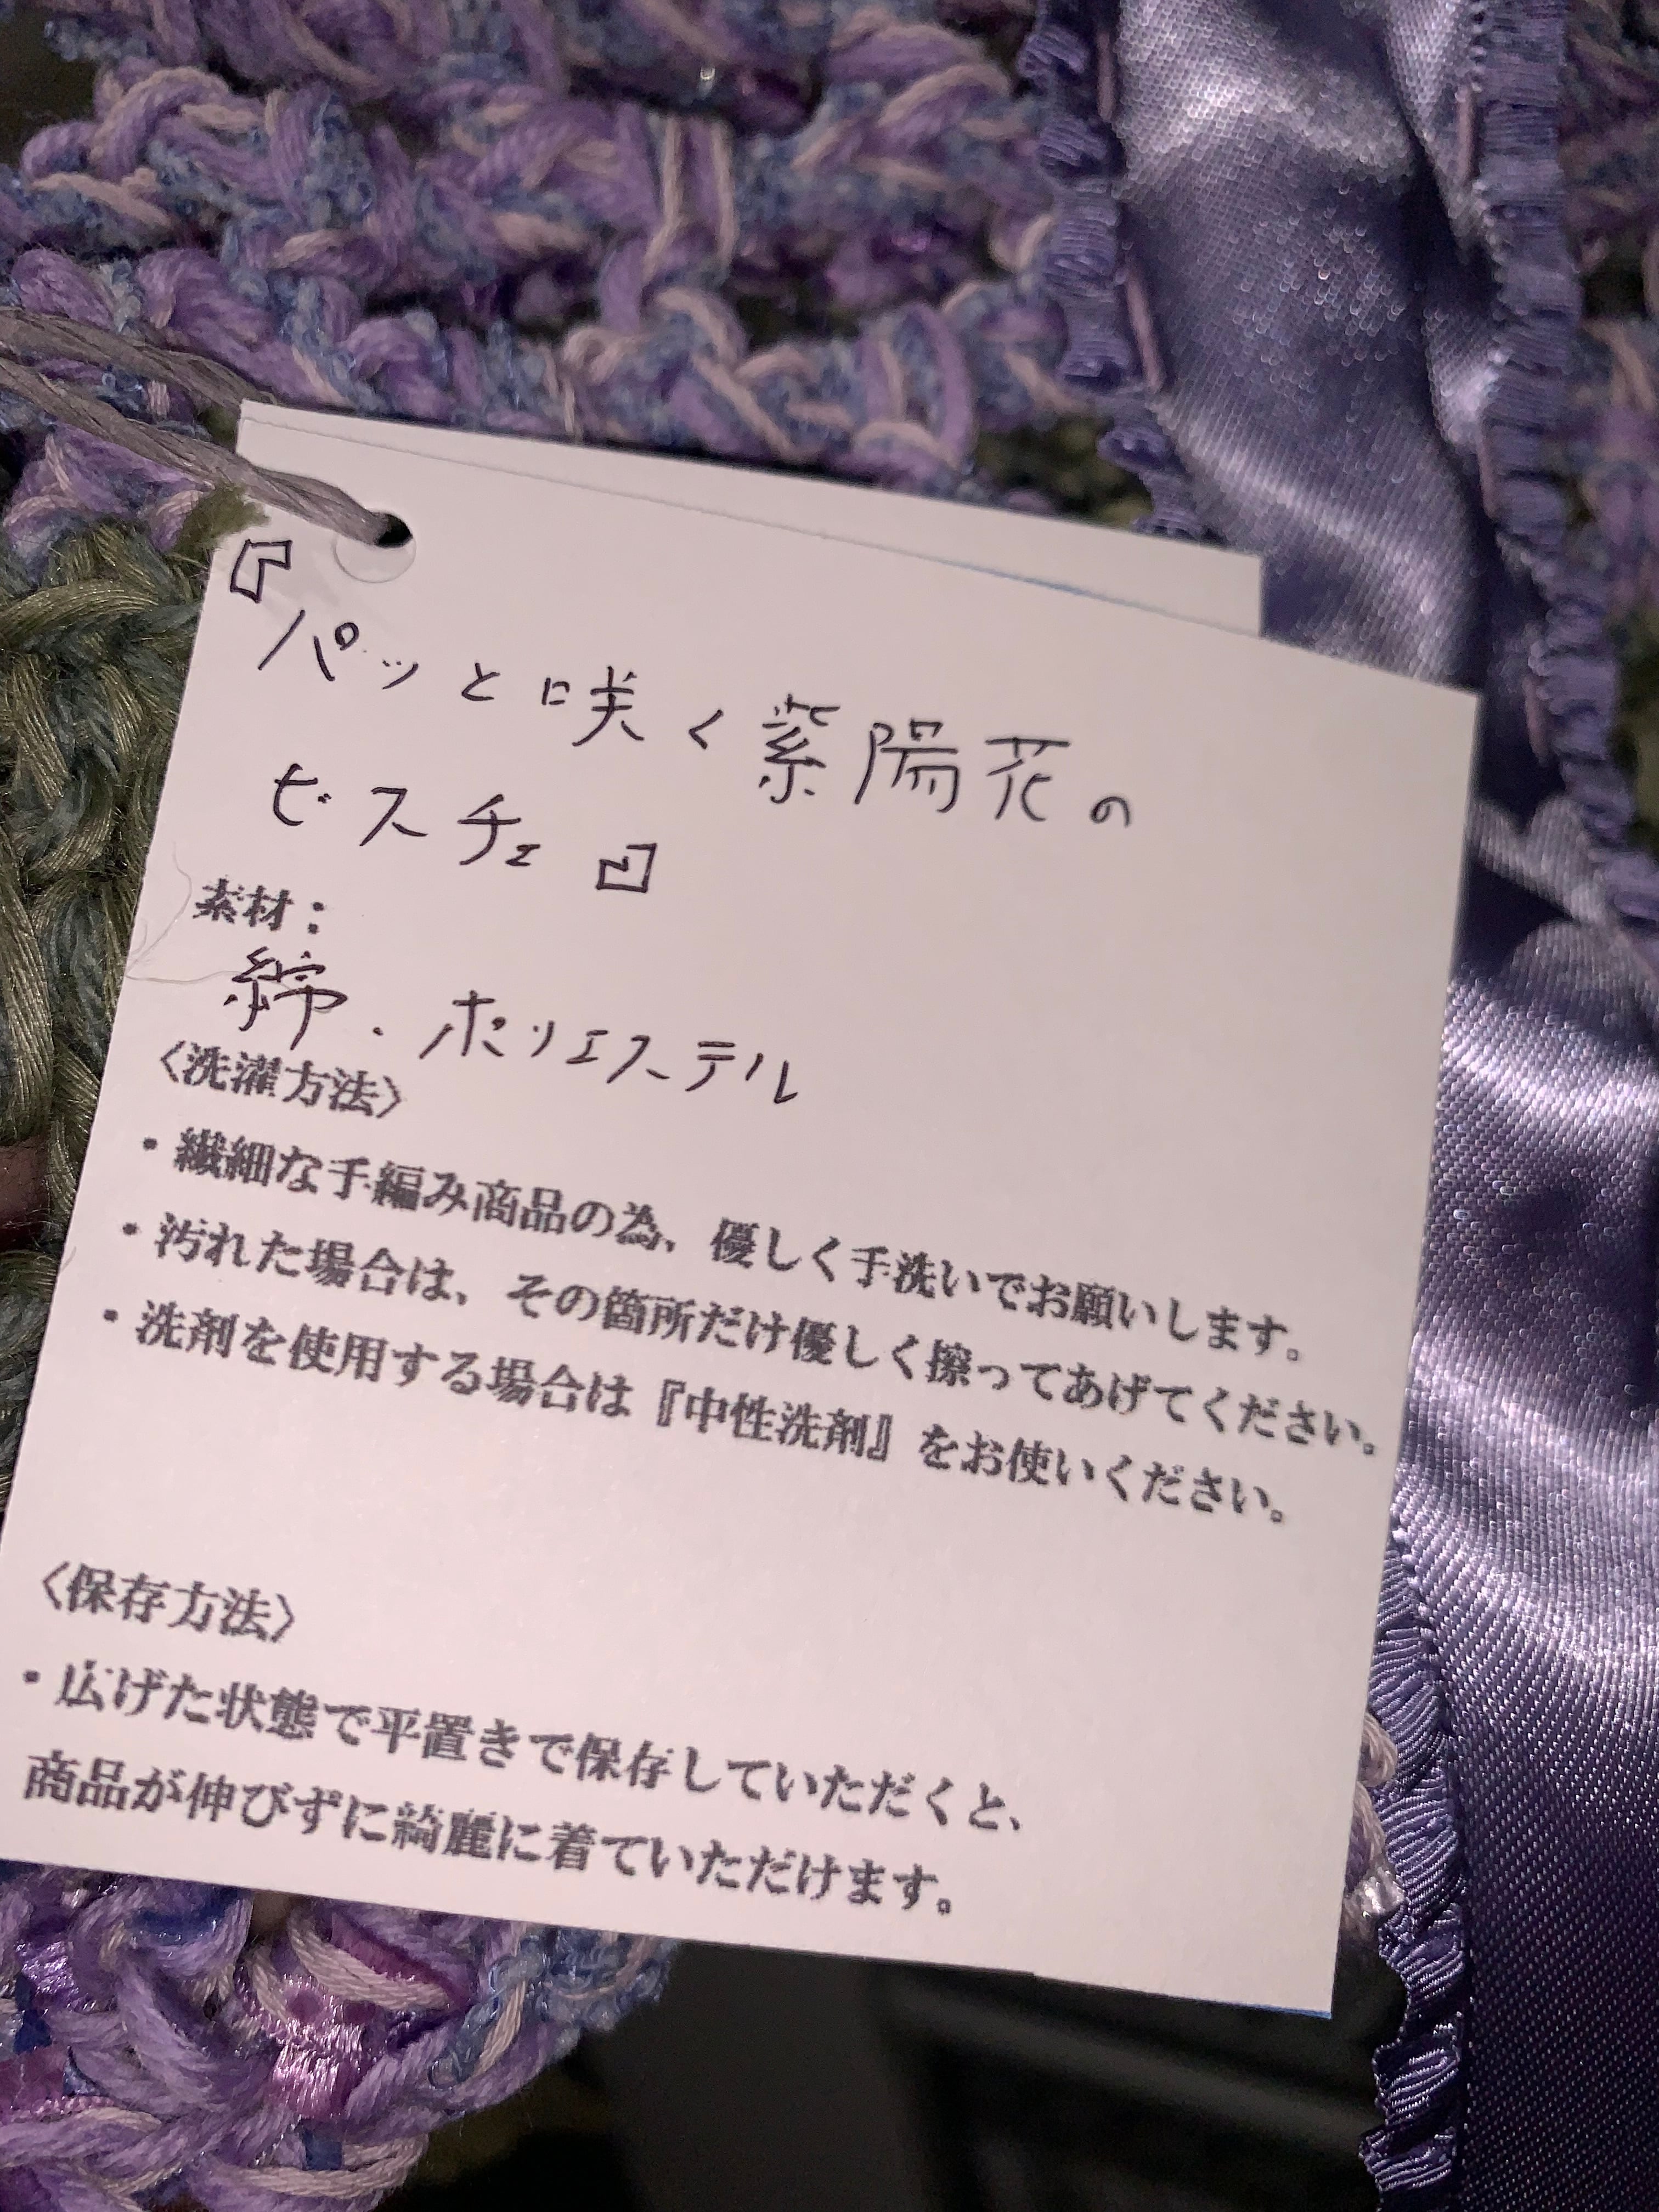 『パッと咲く紫陽花の
ビスチェ』
素材：
綿・ポリエステル
〈洗濯方法〉
・繊細な手編み商品の為、優しく手洗いでお願いします。
・汚れた場合は、その箇所だけ優しく擦ってあげてください。
・洗剤を使用する場合は『中性洗剤』をお使いください。
〈保存方法〉
・広げた状態で平置きで保存していただくと、
商品が伸びずに綺麗に着ていただけます。